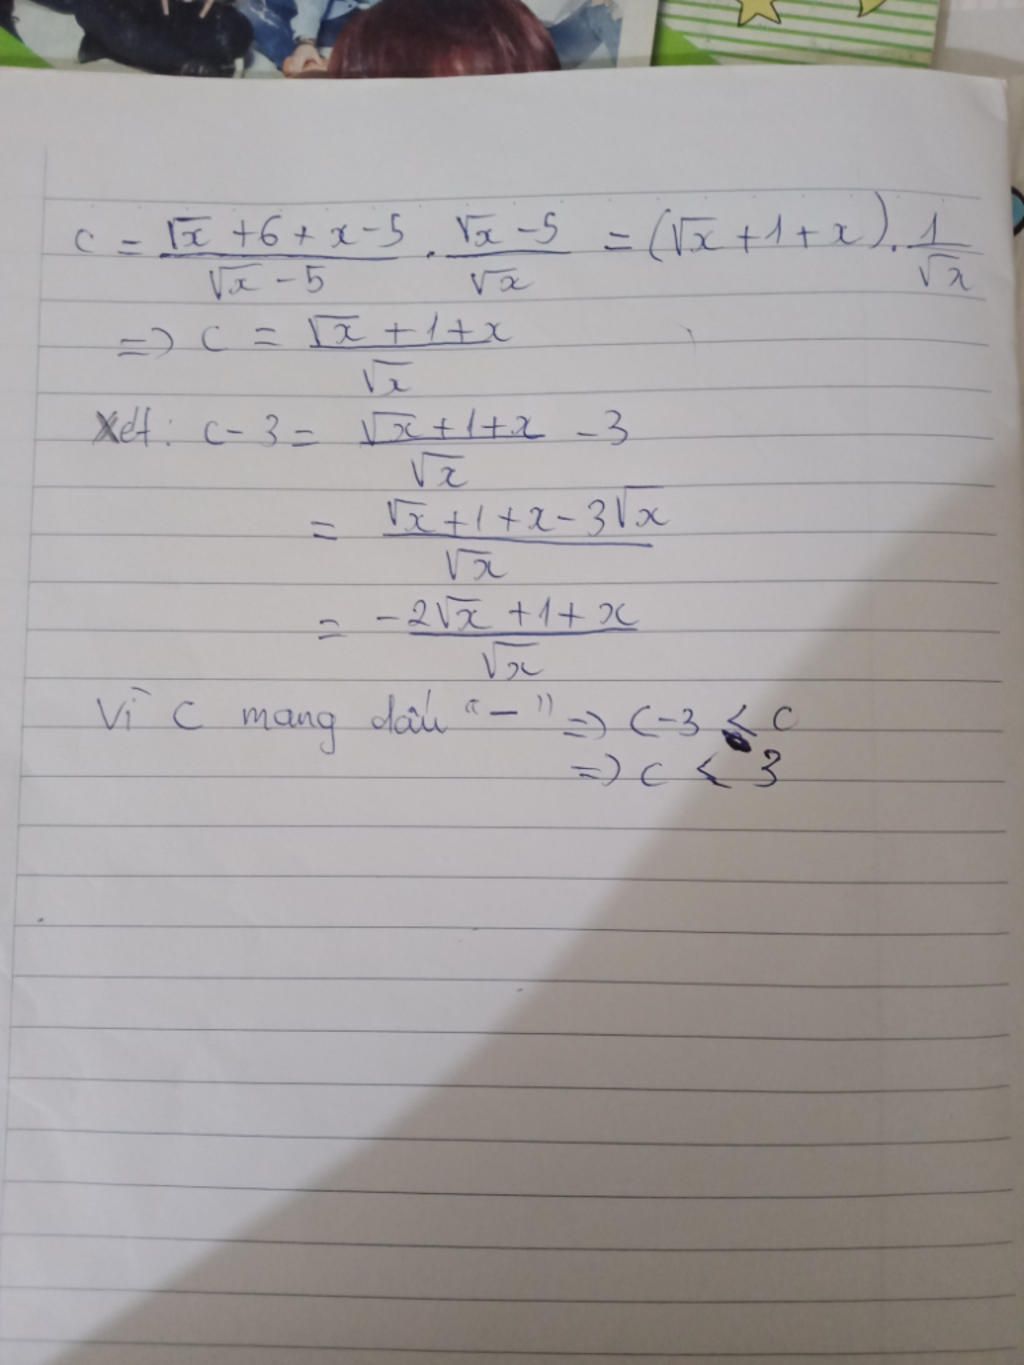 C = (√x + 6 + x - 5)/(√x - 5) . (√x - 5)/√x = (√x + 1 + x) . 1/√x
=> C = (√x + 1 + x)/√x
Xét: C - 3 = (√x + 1 + x)/√x - 3
= (√x + 1 + x - 3√x)/√x
= (-2√x + 1 + x)/√x
Vì C mang dấu "-" => C - 3 < C
=> C < 3